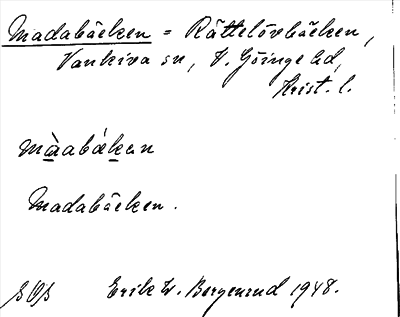 Madabäcken = Rättelövbäcken,
Vankiva sn, V. Göinge hd,
Krist. l.
màabákan
Madabäcken.
Erik W. Borgenrud 1948.